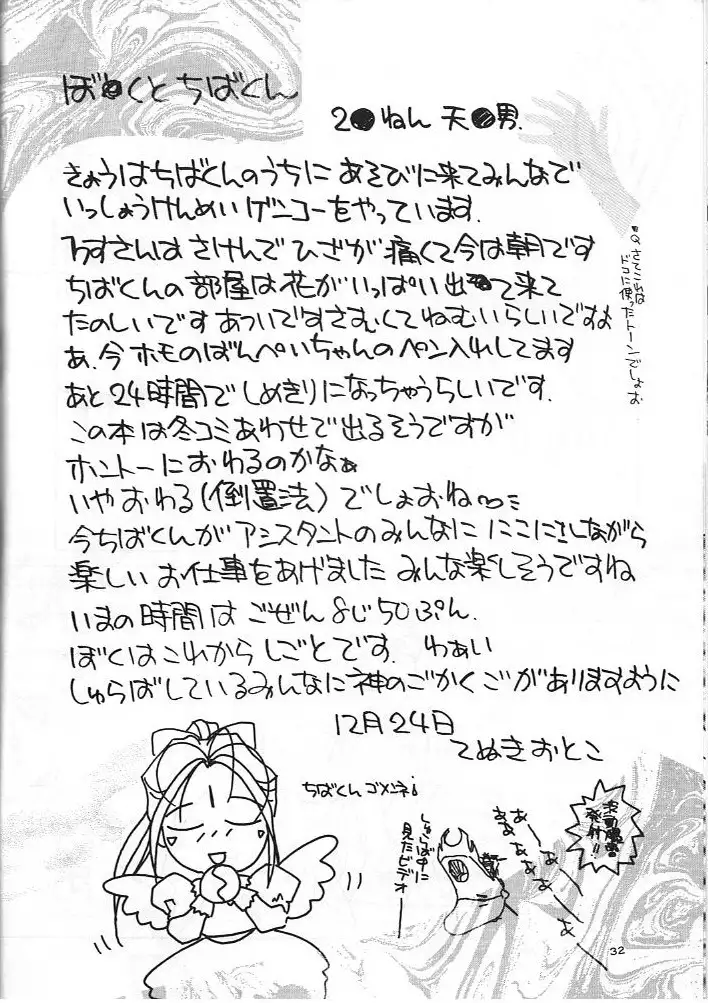 ぼ●くとちばくん
2●ねん 天●男.
きょうはちばくんのうちに あそびに来てみんなで
いっしょうけんめい ゲンコーをやっています.
さんは さけんで ひざが 痛くて今は朝です
ちばくんの部屋は花がいっぱい出て来て
たのしいです あついですさむくてねむいらしいですよ
あ、今 ホモのばんぺいちゃんの ペン入れしてます
あと24時間で しめきりに なっちゃうらしいです.
この本は冬コミあわせで出るそうですが
ホントーにおわるのかなぁ
いやおわる(倒置法)でしょおね〜
今ちばくんがアシスタントのみんなに にこにこしながら
楽しい お仕事をあげました みんな楽しそうですね
いまの時間は ごぜん8じ50ぷん.
ぼくはこれから しごとです. わぁい
しゅらばしているみんなに神のごかくごがありますように
12月24日
てぬきおとこ
Q さてこれは
ドコに使ったトーンでしょお
ちばくんゴメンネ!
しゅらば中に
見たビデオー
あーー
ああああああ
32